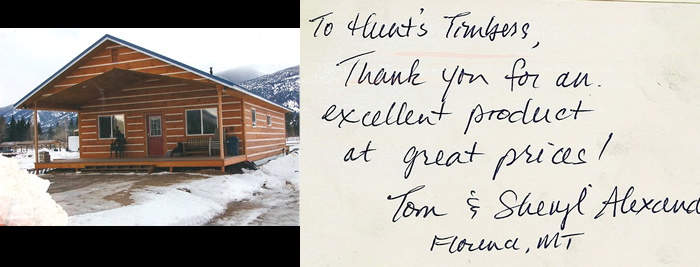 To Hunt's Timbers,
Thank you for an
excellent product
at great prices!
Tom & Sheryl Alexand
Florence, MT